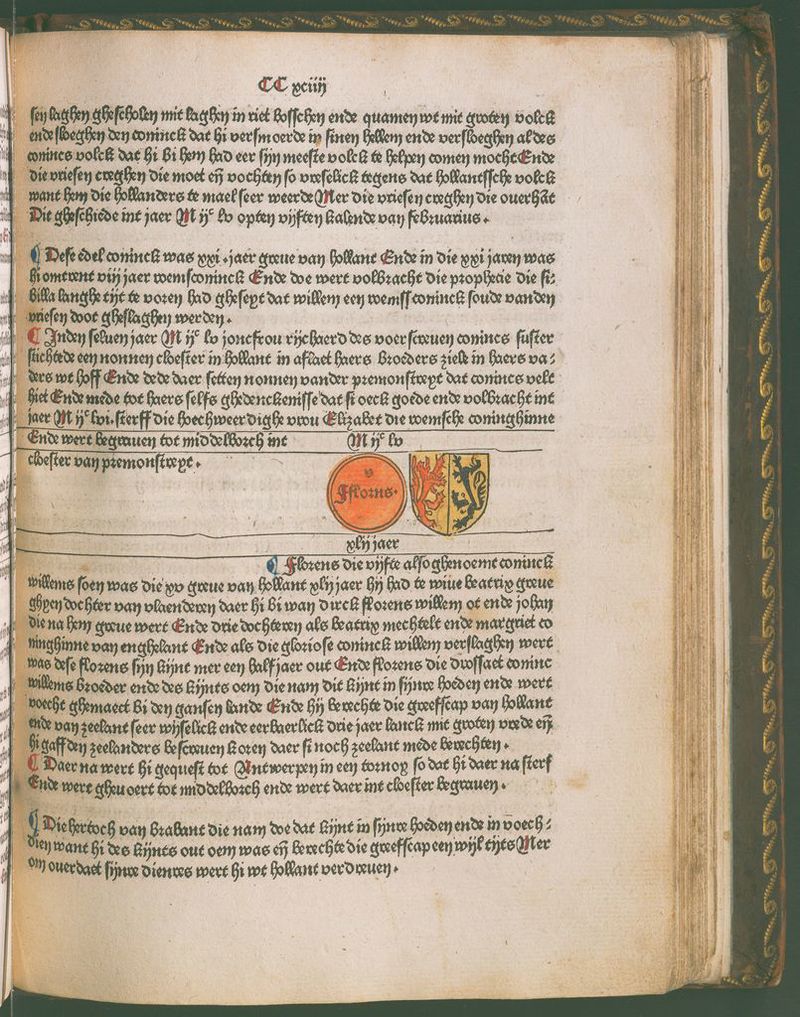 CC xciiij
sen laghen ghescholen mit laghen in riet bosschen ende quamen wt mit groten volck
ende sloeghen den coninck dat hi versmoerde in sinen hellem ende versloeghen al des
conincs volck dat hi bi hem had eer sijn meeste volck te helpen comen mocht Ende
die vriesen creghen die moet eñ vochten so vreselick tegens dat hollantssche volck
want hem die hollanders te mael seer weerde Mer die vriesen creghen die ouerhāt
Dit gheschiede int jaer M ijᶜ lv opten vijften kalende van februarius.
Dese edel coninck was xxi. jaer greue van hollant Ende in die xxi jaren was
hi omtrent viij jaer roemsconinck Ende doe wert volbracht die prophecie die si⸗
billa langhe tijt te voren had gheseyt dat willem een roemss coninck soude vanden
vriesen doot gheslaghen werden.
Inden seluen jaer M ijᶜ lv joncfrou rijchaerd des voerscreuen conincs suster
stichtede een nonnen cloester in hollant in aflaet haers broeders ziele in haers va⸗
ders wt hoff Ende dede daer setten nonnen vander premonstreyt dat conincs velt
hiet Ende mede tot haers selfs ghedenckenisse dat si oeck goede ende volbracht int
jaer M ijᶜ lvi. sterff die hoechweerdighe vrou Elizabet die roemsche coninghinne
Ende wert begrauen tot middelborch int M ijᶜ lv
cloester van premonstreyt.
v
Fflorns.
xlij jaer
Florens die vijfte also ghenoemt coninck
willems soen was die xv greue van hollant xlij jaer hij had te wiue beatrix greue
ghyen dochter van vlaenderen daer hi bi wan dirck florens willem ot ende johan
die na hem greue wert Ende drie dochteren als beatrix mechtelt ende margriet co
ninghinne van enghelant Ende als die gloriose coninck willem verslaghen wert
was dese florens sijn kijnt mer een half jaer out Ende florens die drossaet coninc
willems broeder ende des kijnts oem die nam dit kijnt in sijnre hoeden ende wert
voecht ghemaect bi den gansen lande Ende hij berechte die greefscap van hollant
ende van zeelant seer wijselick ende eerbaerlick drie jaer lanck mit groten vrede eñ
hi gaff den zeelanders bescreuen koren daer si noch zeelant mede berechten.
Daer na wert hi gequest tot Antwerpen in een tornoy so dat hi daer na sterf
Ende wert gheuoert tot middelborch ende wert daer int cloester begrauen.
Die hertoch van brabant die nam doe dat kijnt in sijnre hoeden ende in voech⸗
dien want hi des kijnts out oem was eñ berechte die greefscap een wijl tijts Mer
om ouerdaet sijnre dienres wert hi wt hollant verdreuen.